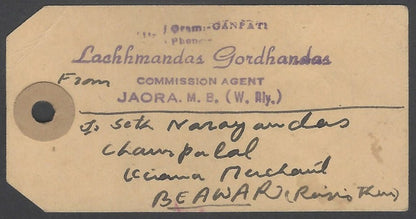 Gram:-GANPATI
Phone
Lachhmandas Gordhandas
From
COMMISSION AGENT
JAORA. M. B. (W. Rly.)
To Seth Narayandas
Champalal
Kirana Merchant
BEAWAR (Rajasthan)